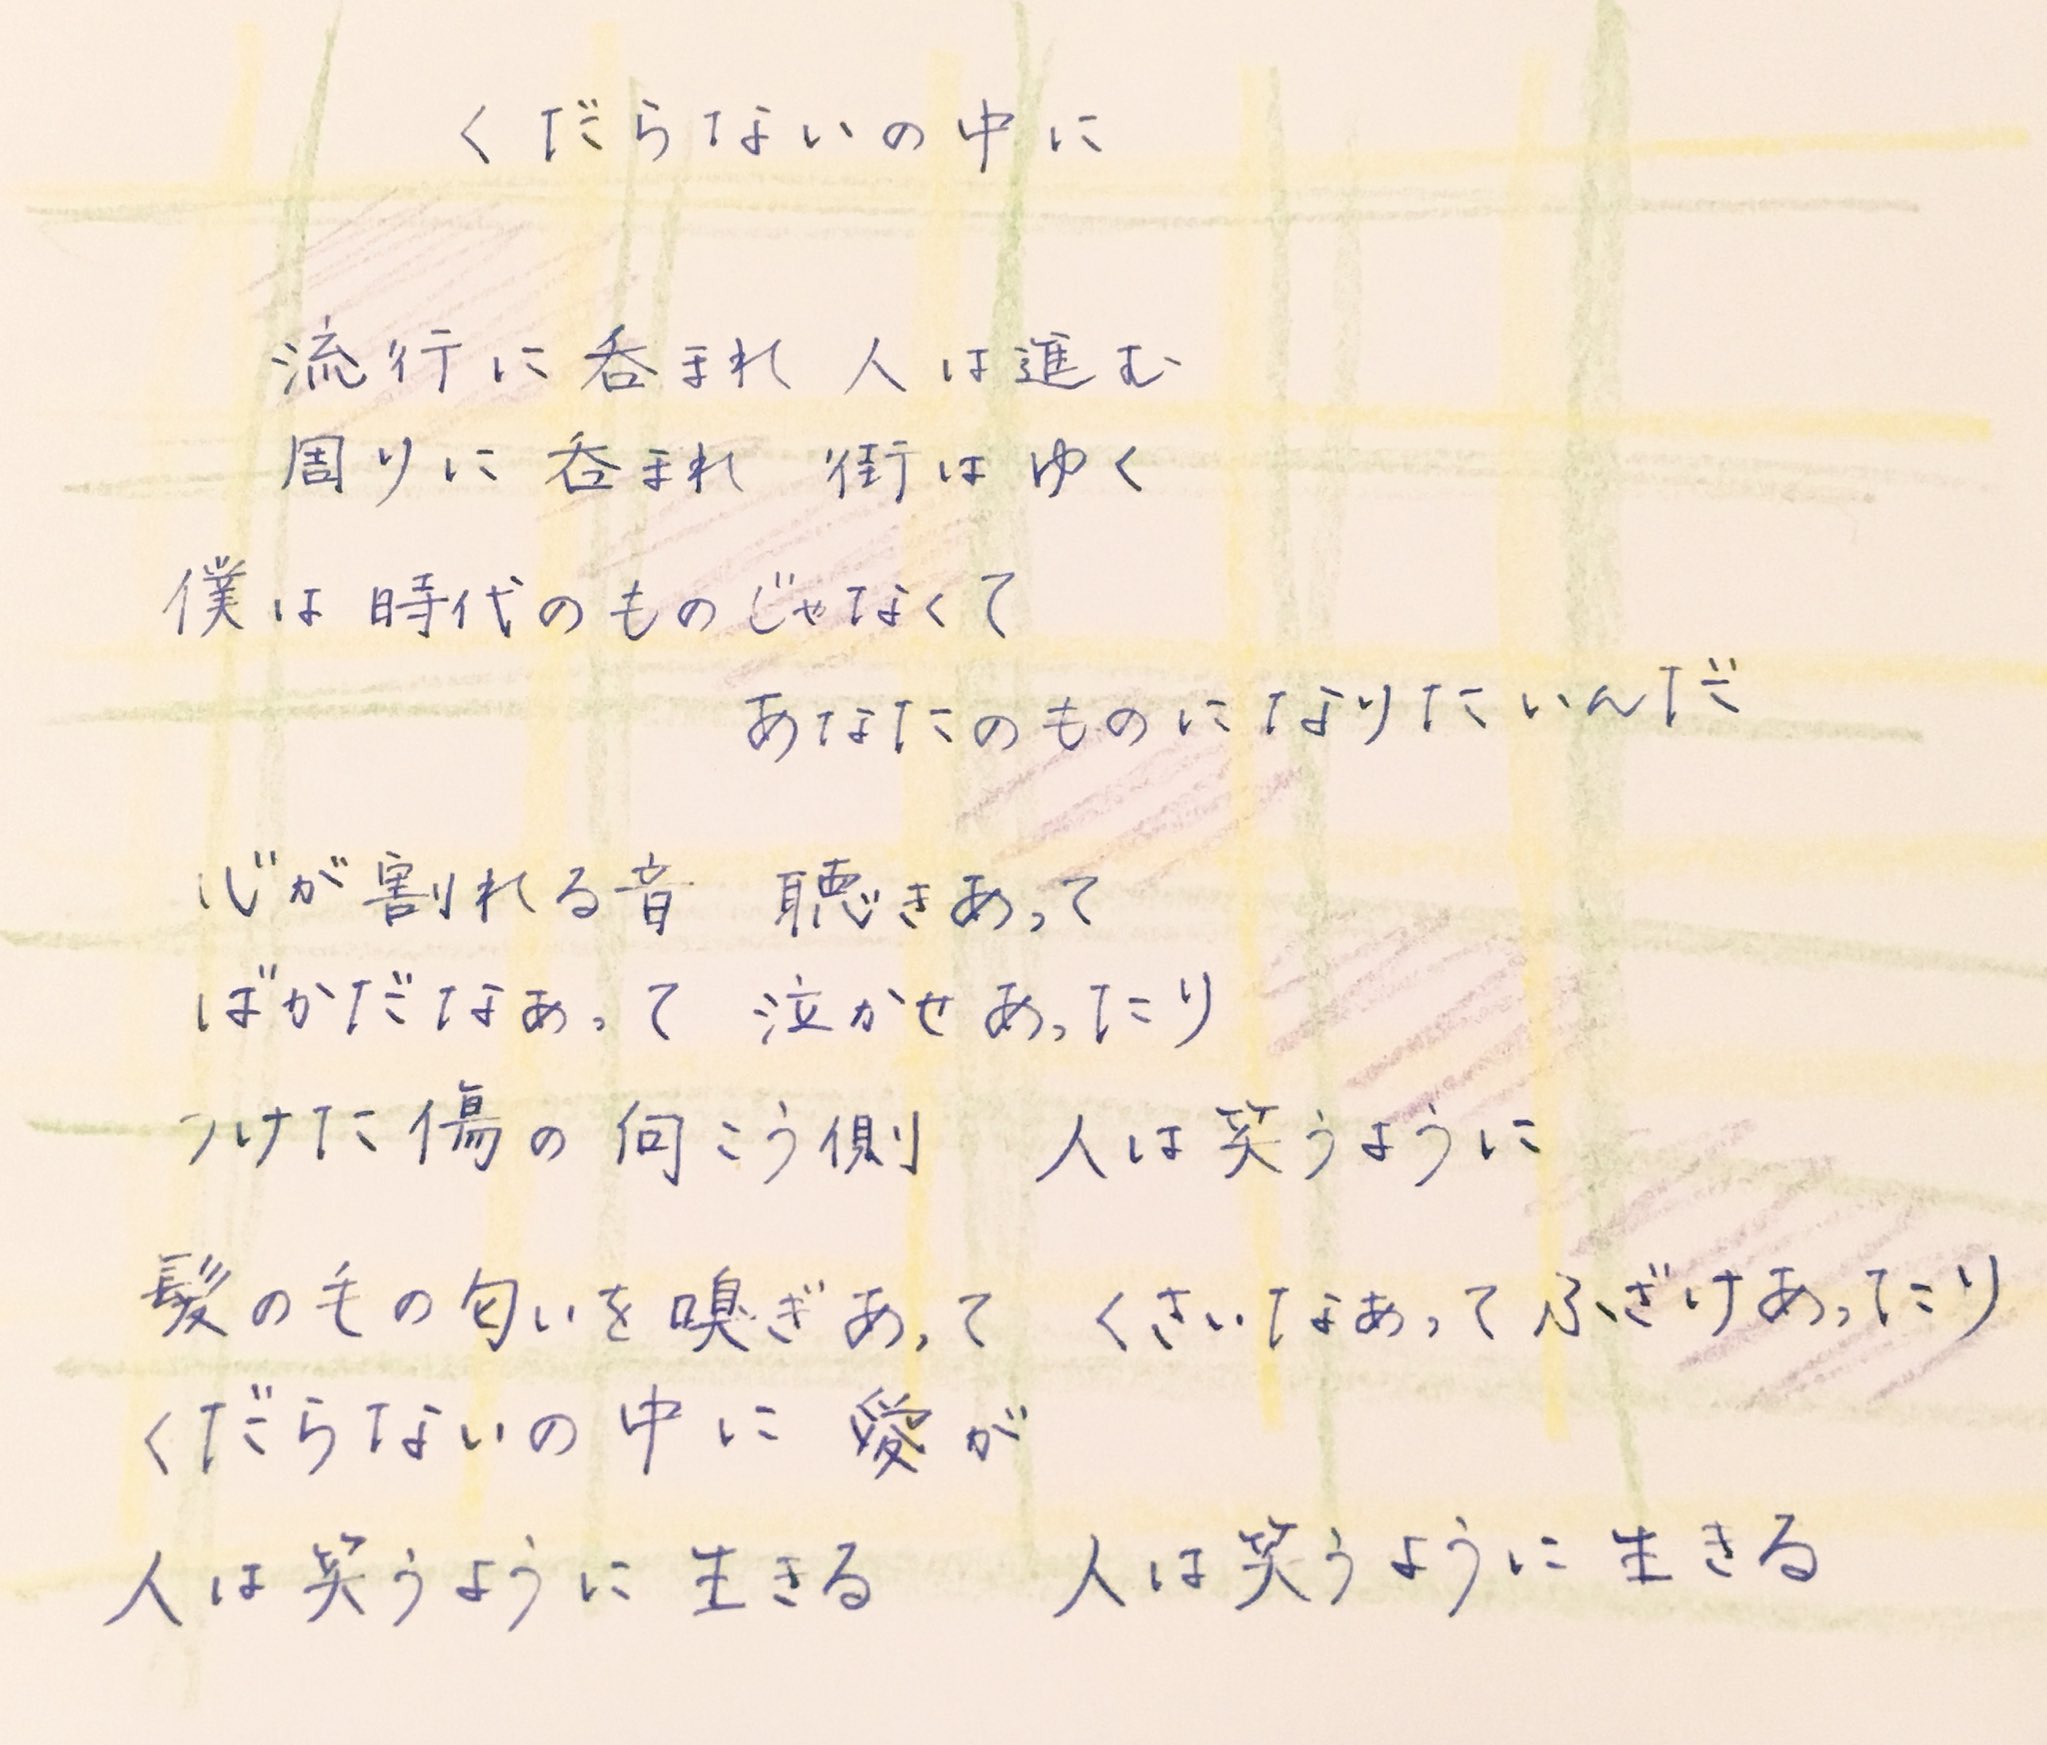 くだらないの中に
流行に呑まれ 人は進む
周りに呑まれ 街はゆく
僕は時代のものじゃなくて
あなたのものになりたいんだ
心が割れる音 聴きあって
ばかだなぁって 泣かせあったり
つけた傷の向こう側 人は笑うように
髪の毛の匂いを嗅ぎあって くさいなぁってふざけあったり
くだらないの中に愛が
人は笑うように生きる 人は笑うように生きる